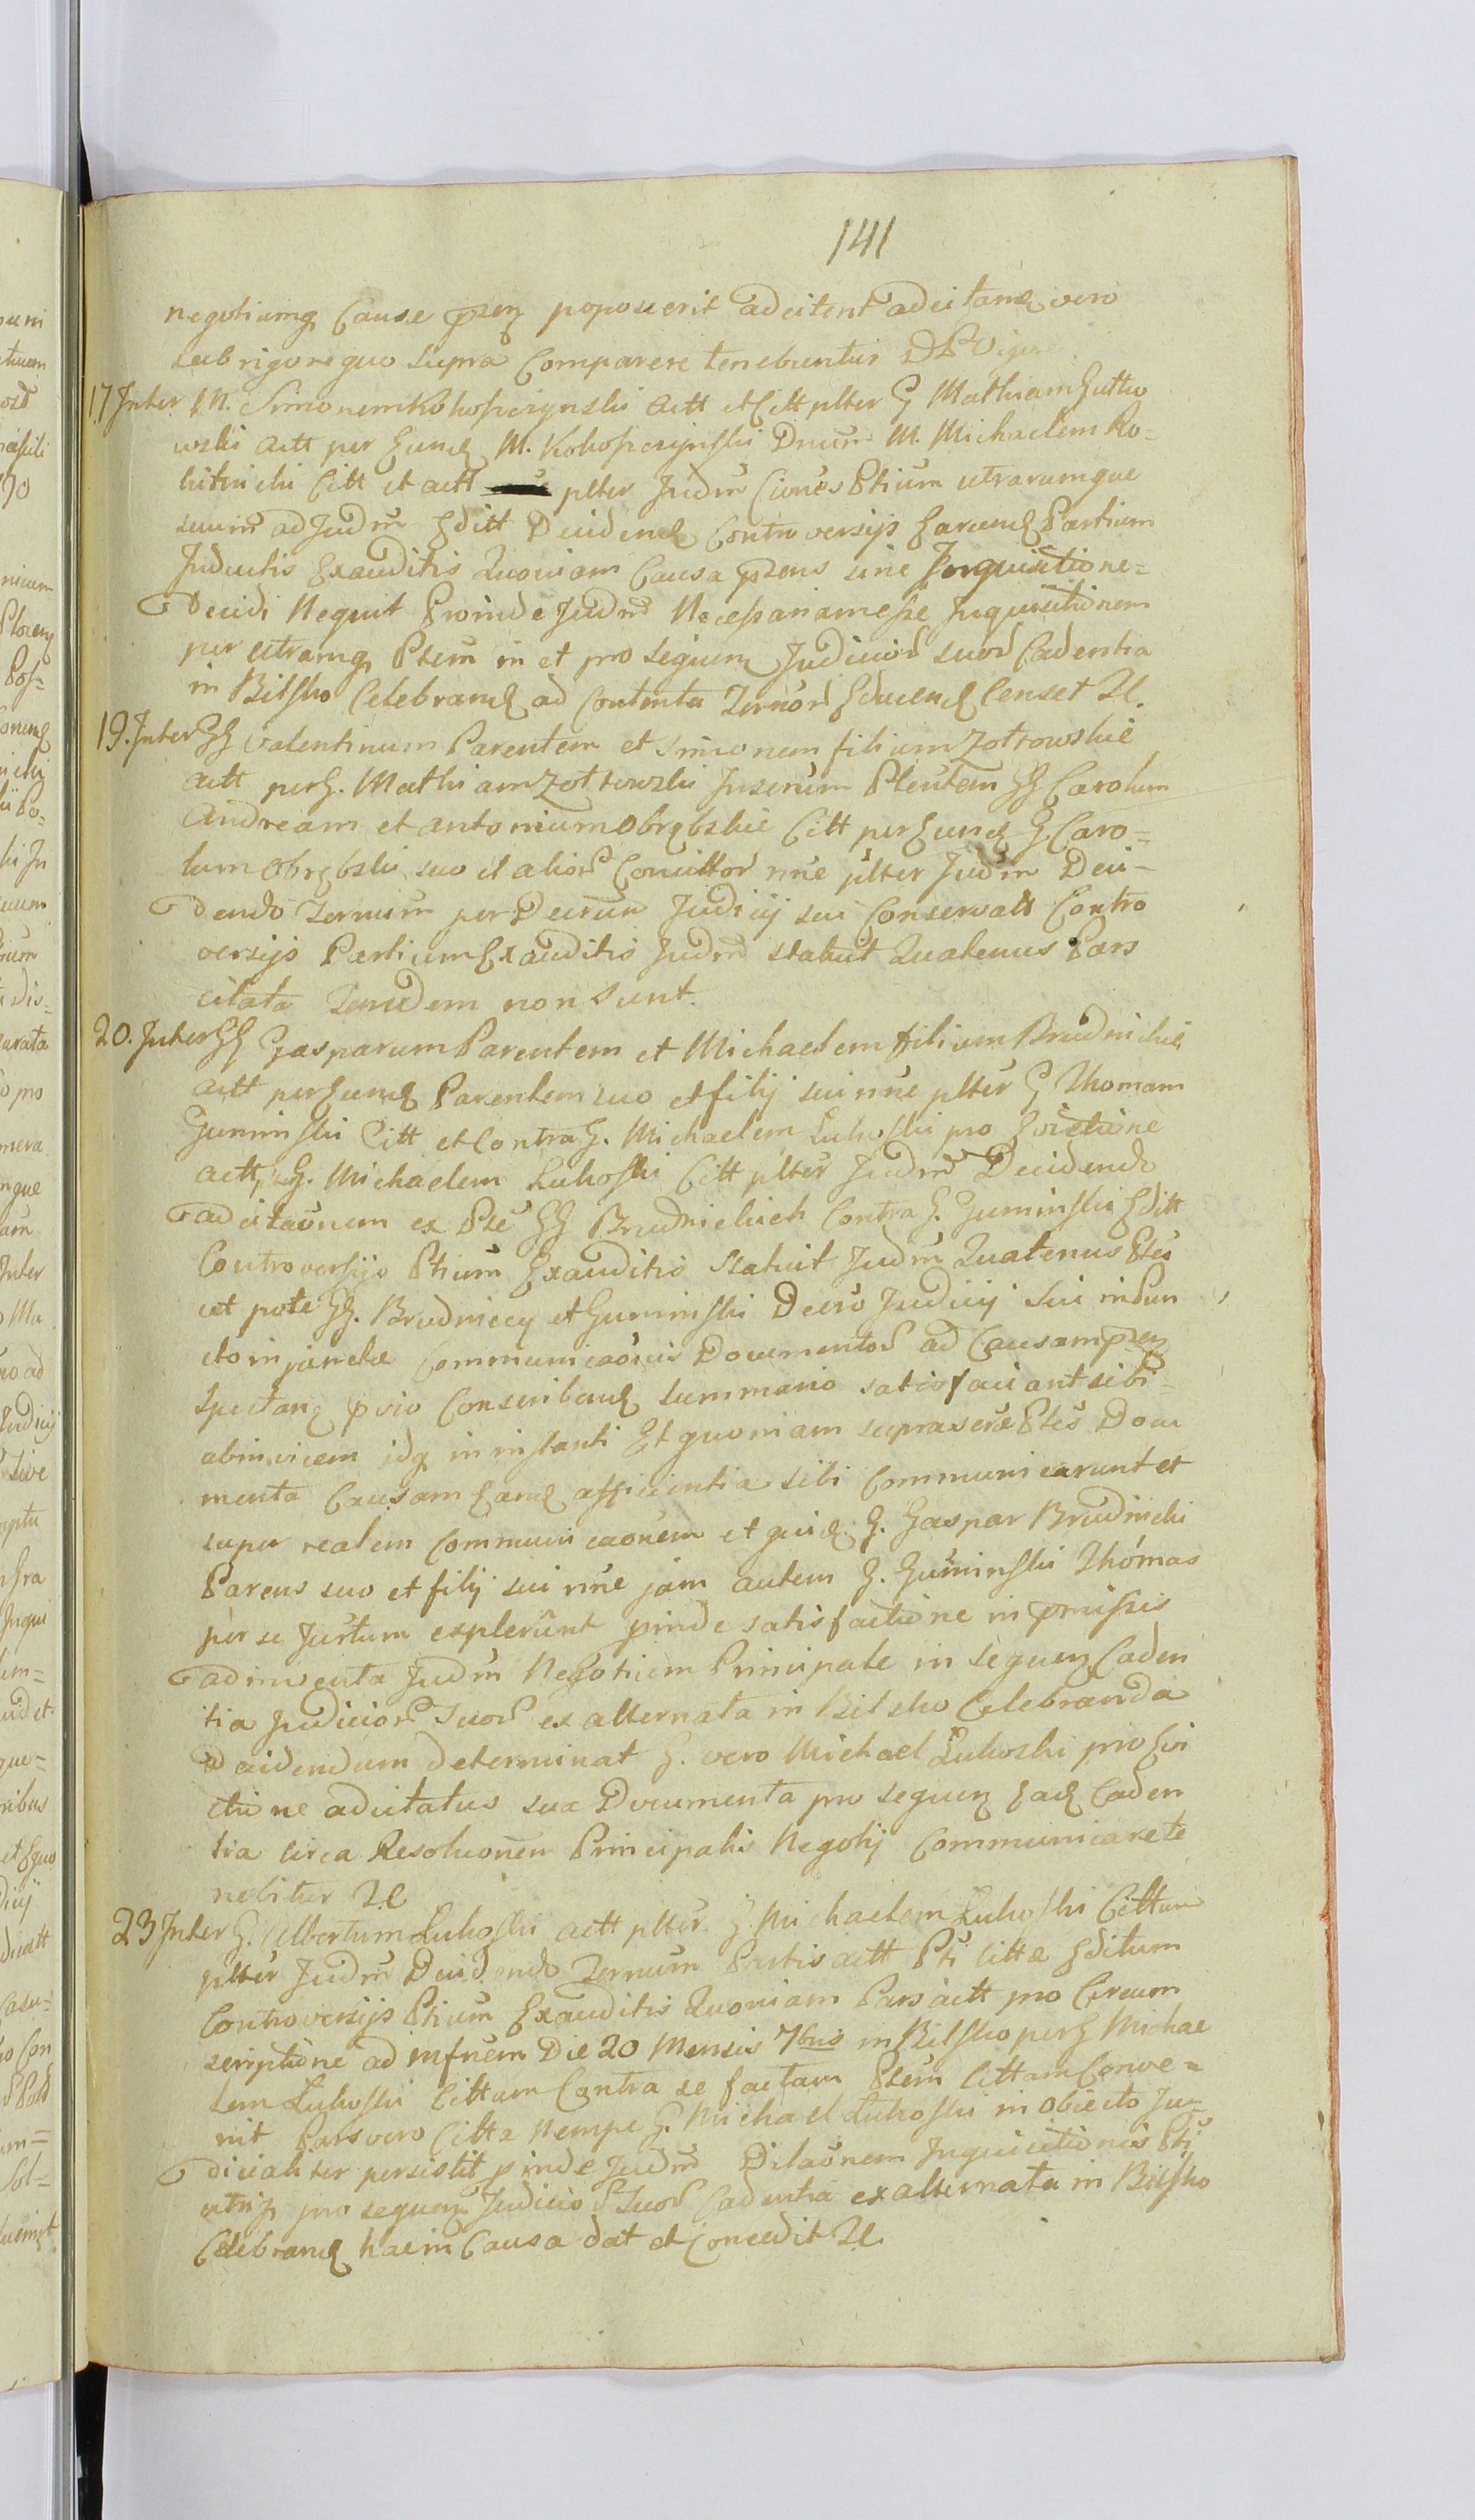 141
negotiumq Cause pzen poposcerit adcitent adcitand vero
sub rigore quo supra Comparere tenebuntur DS Vigore
17 Inter M. Simonem Kokoszczynski Actt et Citt plter G Mathiam Gutko
wski Actt per Eund M. Kokoszczynski Dnum M. Michaelem Ro=
kitnicki Citt et actt plter Judm Ciones Ptium utrarumque
suum ad Judm Editt Decidend Controversijs Earund Partium
Inductis Exauditis Quoniam Causa pzens sine Inquisitione=
Decidi Nequit Proinde Judm Necessariam esse Inquisitionem
per utramq Ptem in et pro sequen Judicior suor Cadentia
in Bilsko Celebrand ad Contenta Zernor Educend Censet Zl.
19. Inter GG Valentinum Parentem et Simonem filium Zottowskie
Actt per G. Mathiam Zottowski Inserum Plentem GG Carolum
Andream et Antonium Obrębskie Citt per Eund G Caro=
lum Obrębski suo et alior Concittor nne plter Judm Deci-
dendo Zernum per Decrum Judicij sui Conservatt Contro
versijs Partium Exauditis Judm statuit Quatenus Pars
citata Zandem non sunt.
20. Inter GG Gasparum Parentem et Michaelem filium Brudnickie
actt per Eund Parentem suo et filij sui nne plter G Thomam
Guminski Citt et Contra G. Michaelem Lukoski pro Evictione
actt, p G. Michaelem Lukoski Citt plter Judm Decidendo
adcitaonem ex Pte GG Brudnickich Contra G. Guminski Editt
Controversijs Ptium Exauditis Statuit Judm Quatenus Ptes
ut pote GG. Brudniccy et Guminski Decro Judicij sui in Pun
cto injuncta Communicaonis Documentor ad Causam pzen
spectan pvio Conscribend summario satisfaciant sibi
abinvicem idq in instanti Et quoniam suprascrae Ptes Docu
menta Causam Eand afficientia sibi Communicarunt et
super realem Communicaonem et quid G. Gaspar Brudnicki
Parens suo et filij sui nne jam autem G. Guminski Thomas
per se Jurtum explerunt pinde satisfactione in pmissis
adinventa Judm Negotium Principale in sequen Caden
tia Judicior Suor ex alternata in Bilsko Celebranda
Decidendum determinat G. vero Michael Lukoski pro Evi
ctione adcitatus sua Documenta pro sequen Ead Caden
tia circa Resoluonem Principalis Negotij Communicare te
nebitur Zl
23 Inter G. Albertum Lukoski actt plter G. Michaelem Lukoski Cittum
plter Judm Decidendo Zernum Partis actt Pti Citta Editum
Controversijs Ptium Exauditis Quoniam Pars actt pro Circum
scriptione ad infnem Die 20 Mensis 7bris in Bilsko per G Michae
lem Lukoski Cittum Contra se factam Ptem Cittam Conve=
nit Pars vero Citta Nempe G. Michael Lukoski in Obiecto Ju=
dicialiter persistit pinde Judm Dilaonem Inquisitionis Pti
utriq pro sequen Judicior Suor Cadentia ex alternata in Bilsko
Celebrand hac in Causa dat et Concedit Zl.